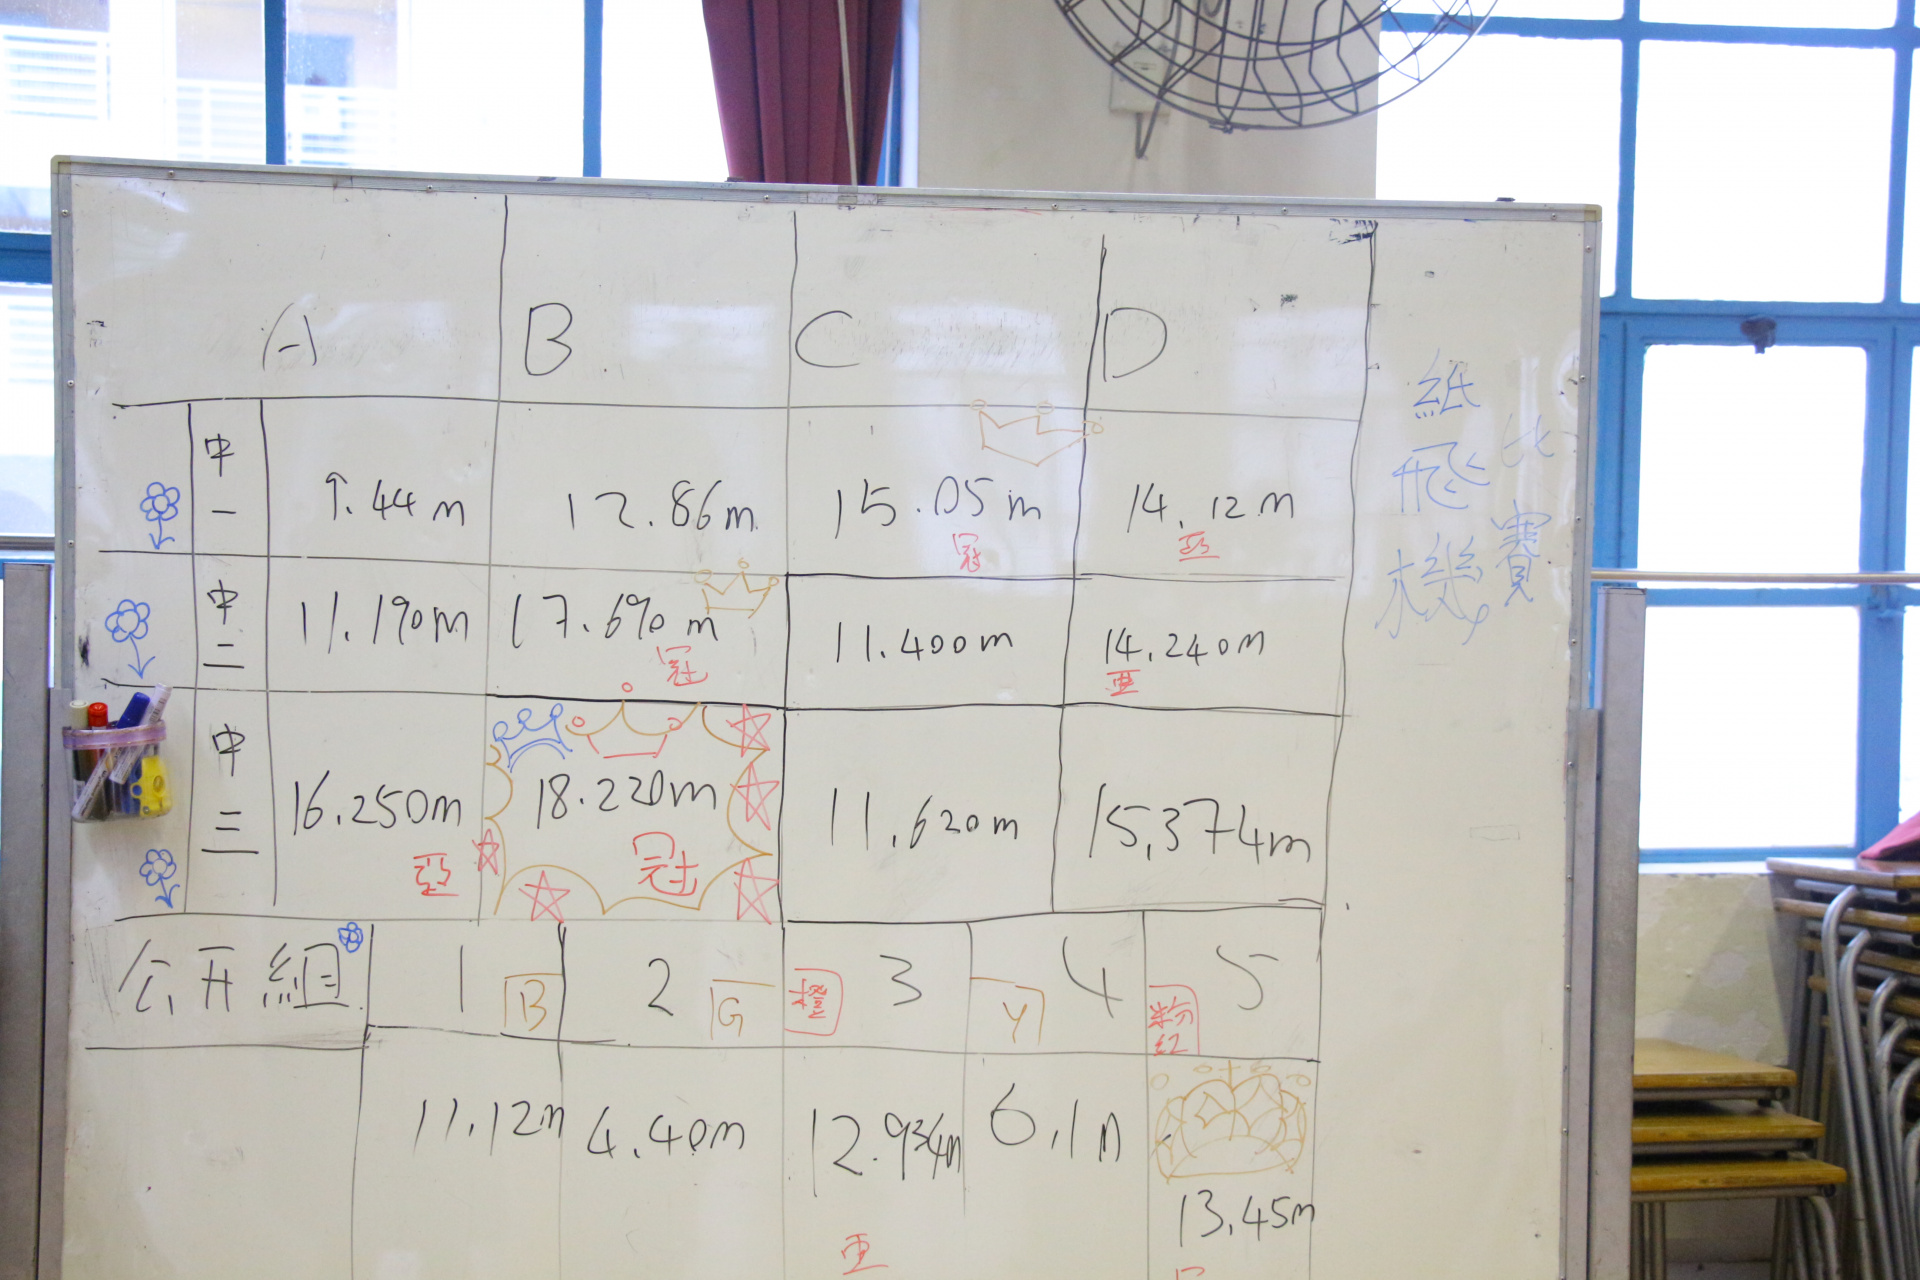 A B C D
中一 9.44m 12.86m 15.05m 冠 14.12m 亞
中二 11.190m 17.690m 冠 11.400m 14.240m 亞
中三 16.250m 亞 18.220m 冠 11.620m 15.374m
公开組 1 B 2 G 橙 3 Y 4 粉紅 5
11.12m 4.40m 12.934m 6.1m 13.45m
亚
紙飛機
比賽